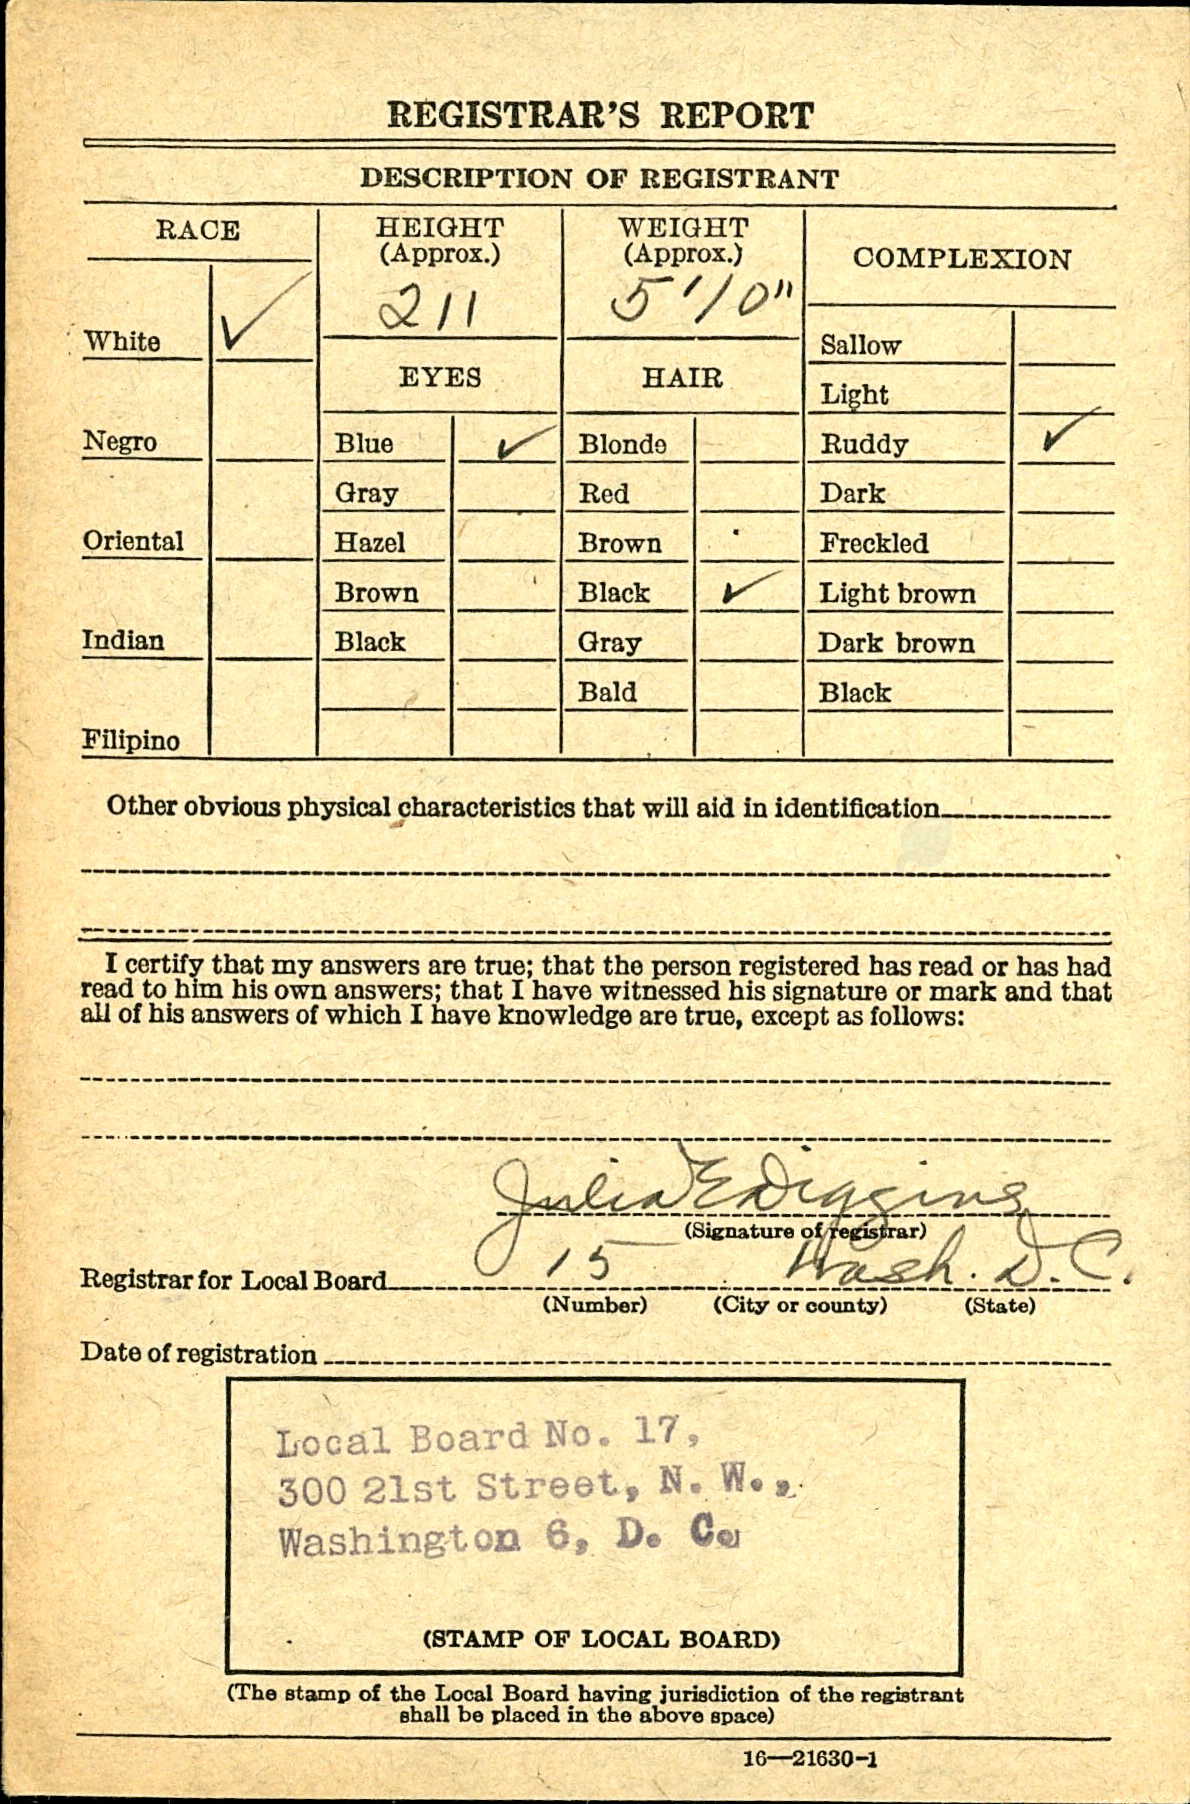 REGISTRAR'S REPORT
DESCRIPTION OF REGISTRANT
RACE
HEIGHT
(Approx.)
WEIGHT
(Approx.)
COMPLEXION
211
5'10"
White ✓
Sallow
EYES
HAIR
Light
Negro
Blue ✓
Blonde
Ruddy ✓
Gray
Red
Dark
Oriental
Hazel
Brown
Freckled
Brown
Black ✓
Light brown
Indian
Black
Gray
Dark brown
Bald
Black
Filipino
Other obvious physical characteristics that will aid in identification
I certify that my answers are true; that the person registered has read or has had
read to him his own answers; that I have witnessed his signature or mark and that
all of his answers of which I have knowledge are true, except as follows:
Julia E Diggins
(Signature of registrar)
Registrar for Local Board 15 Wash. D. C.
(Number) (City or county) (State)
Date of registration
Local Board No. 17,
300 21st Street, N. W.,
Washington 6, D. C.
(STAMP OF LOCAL BOARD)
(The stamp of the Local Board having jurisdiction of the registrant
shall be placed in the above space)
16—21630-1